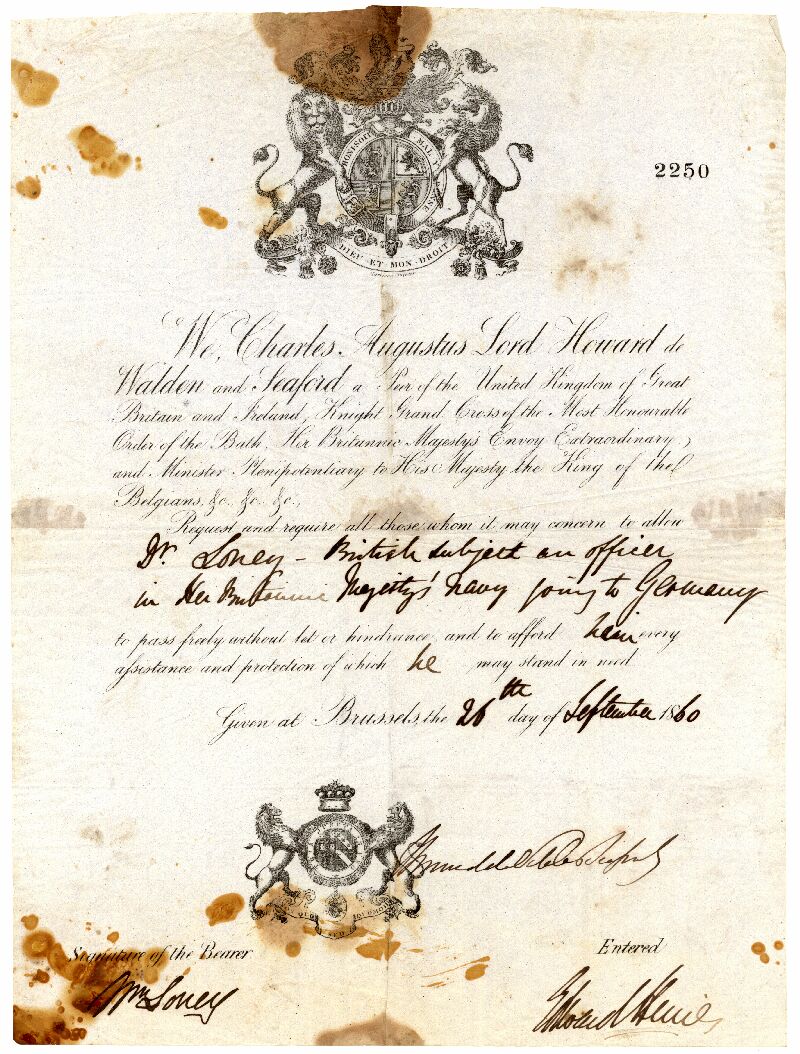 2250
HONI SOIT QUI MAL Y PENSE
DIEU · ET · MON · DROIT
We, Charles Augustus Lord Howard de
Walden and Seaford a Peer of the United Kingdom of Great
Britain and Ireland, Knight Grand Cross of the Most Honourable
Order of the Bath, Her Britannic Majesty's Envoy Extraordinary,
and Minister Plenipotentiary to His Majesty the King of the
Belgians, &c. &c. &c.,
Request and require all those whom it may concern to allow
Dr. Loney – British subject an officer
in Her Britannic Majesty's Navy going to Germany
to pass freely without let or hindrance, and to afford him every
assistance and protection of which he may stand in need
Given at Brussels, the 26th day of September 1860
Signature of the Bearer
Entered
Wm Loney
Edward